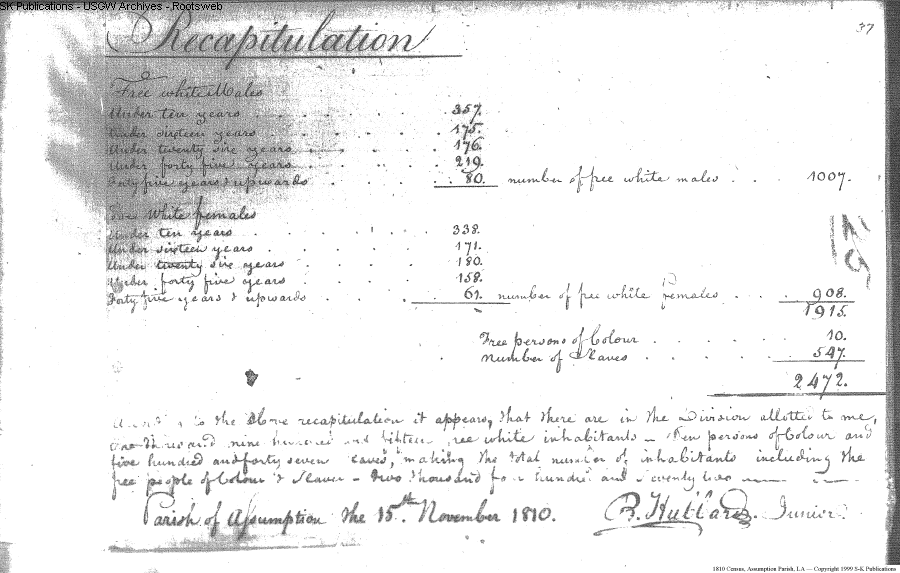 SK Publications - USGW Archives - Rootsweb
37
Recapitulation
Free white Males
Under ten years . . . . . . 357.
Under sixteen years . . . . . 175.
Under twenty six years . . . . . 176.
Under forty five years . . . . 219.
Forty five years & upwards . . . . 80. number of free white males . . . 1007.
Free White females
Under ten years . . . . . . 338.
Under sixteen years . . . . . . 171.
Under twenty six years . . . . . 180.
Under forty five years . . . . . 158.
Forty five years & upwards . . . . 61. number of free white females . . . 908.
1915.
Free persons of Colour . . . . . 10.
Number of Slaves . . . . . 547.
2472.
to the above recapitulation it appears, that there are in the Division allotted to me,
one thousand nine hundred and fifteen free white inhabitants — Ten persons of Colour and
five hundred and forty seven slaves, making the total number of inhabitants including the
free people of Colour & Slaves — two thousand four hundred and seventy two
Parish of Assumption the 15th November 1810. B. Hubbard Junior.
1810 Census, Assumption Parish, LA — Copyright 1999 S-K Publications